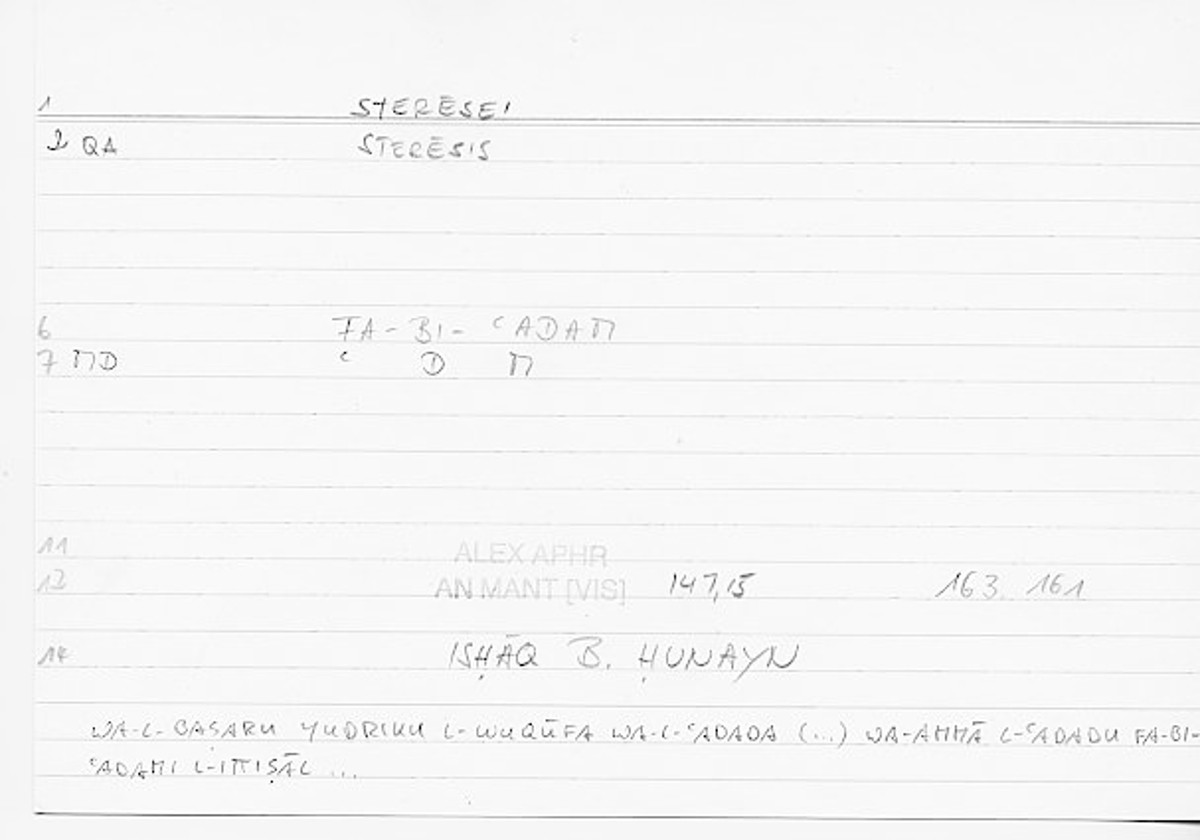 1 STERĒSEI
2 QA STERĒSIS
6 FA-BI-ʿADAM
7 MD ʿ D M
11 ALEX APHR
13 AN MANT [VIS] 147,15 163 161
14 ISḤĀQ B. ḤUNAYN
WA-L-BAṢARU YUDRIKU L-WUQŪFA WA-L-ʿADADA (...) WA-AMMĀ L-ʿADADU FA-BI-
ʿADAMI L-ITTIṢĀL ...